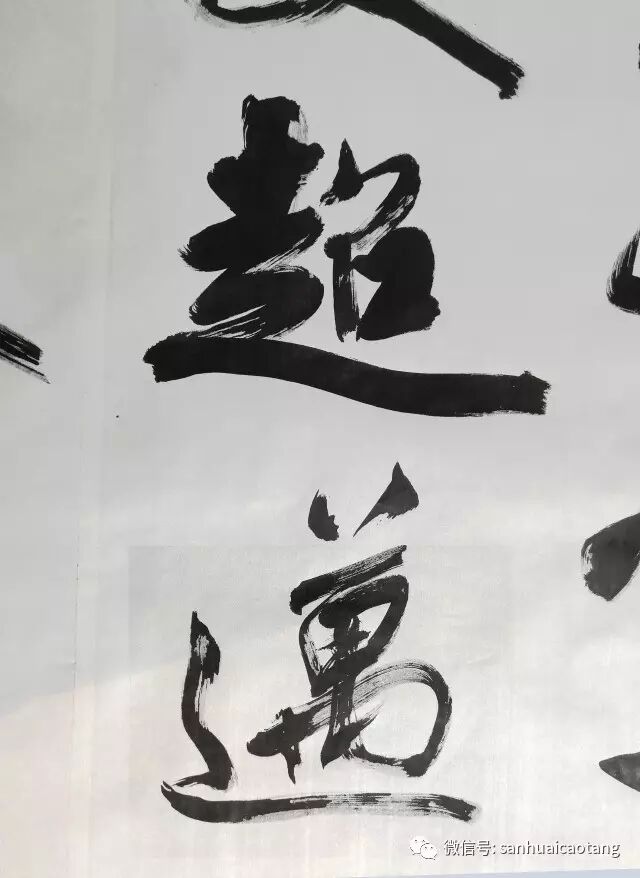 超
邁
微信号: sanhuaicaotang